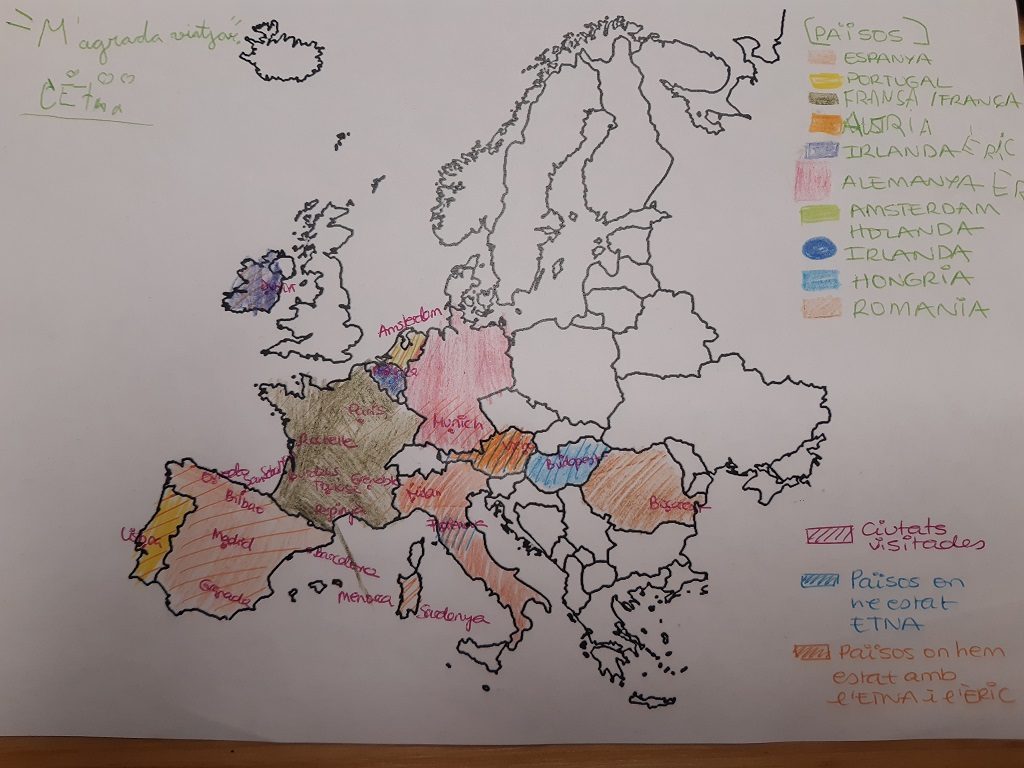 "M'agrada viatjar"
[PAÏSOS]
ESPANYA
PORTUGAL
FRANSA / FRANÇA
AUSTRIA
IRLANDA ÈRIC
ALEMANYA
AMSTERDAM
HOLANDA
IRLANDA
HONGRIA
ROMANIA
Amsterdam
París
Munich
Rochelle
Budapest
Grenoble
Milan
Bilbao
Lisboa
Madrid
Barcelona
Granada
Menorca
Sardenya
Ciutats
visitades
Països on
he estat
ETNA
Països on hem
estat amb
l'ETNA i l'ÈRIC